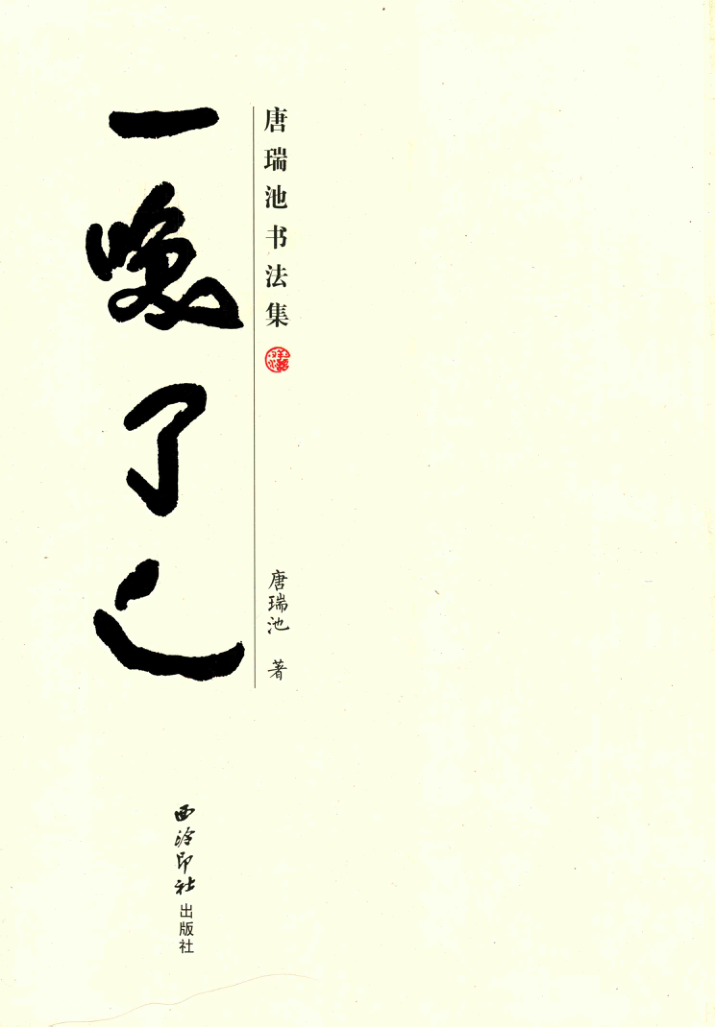 唐瑞池书法集
唐瑞池 著
一 了之
西泠印社出版社